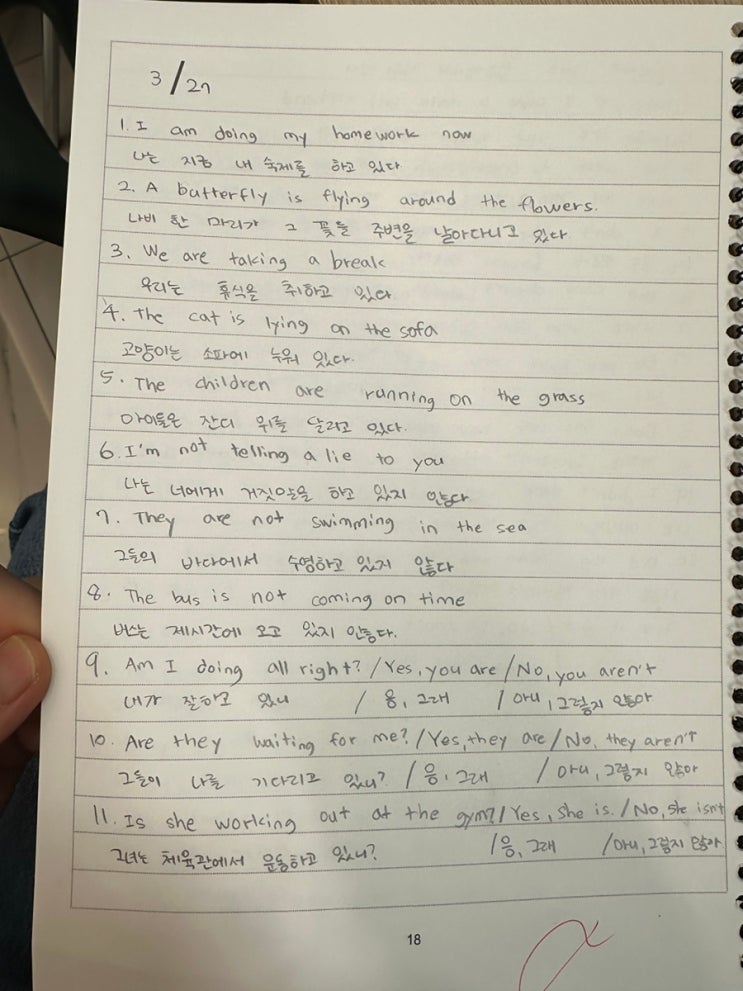 3/27
1. I am doing my homework now
나는 지금 내 숙제를 하고 있다
2. A butterfly is flying around the flowers.
나비 한 마리가 그 꽃들 주변을 날아다니고 있다
3. We are taking a break
우리는 휴식을 취하고 있다
4. the cat is lying on the sofa
고양이는 소파에 누워 있다.
5. The children are running on the grass
아이들은 잔디 위를 달리고 있다.
6. I'm not telling a lie to you
나는 너에게 거짓을 하고 있지 않다
7. They are not swimming in the sea
그들의 바다에서 수영하고 있지 않다
8. The bus is not coming on time
버스는 제시간에 오고 있지 않다.
9. Am I doing all right? / Yes, you are / No, you aren't
내가 잘하고 있니 / 응, 그래 / 아니, 그렇지 않아
10. Are they waiting for me? / Yes, they are / No, they aren't
그들이 나를 기다리고 있니? / 응, 그래 / 아니, 그렇지 않아
11. Is she working out at the gym? / Yes, she is. / No, she isn't
그녀는 체육관에서 운동하고 있니? / 응, 그래 / 아니, 그렇지 않아
18